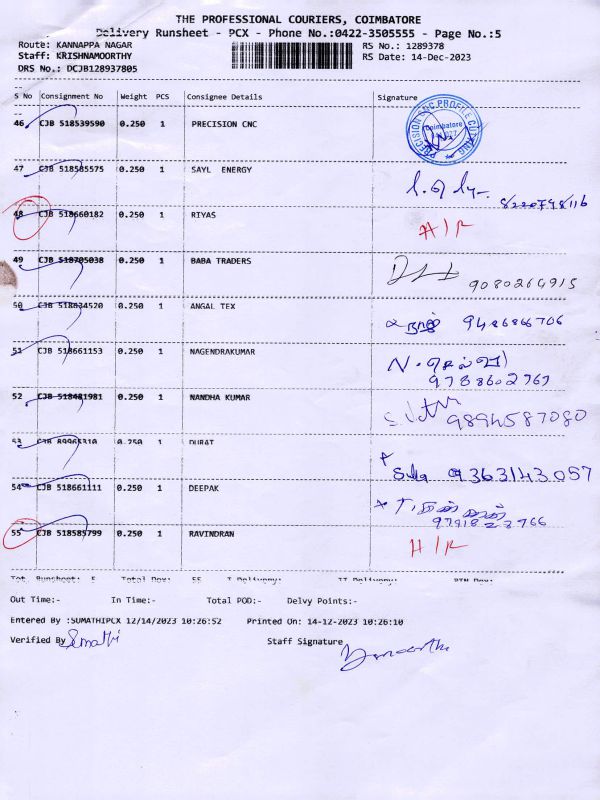 THE PROFESSIONAL COURIERS, COIMBATORE
Delivery Runsheet - PCX - Phone No.:0422-3505555 - Page No.:5
Route: KANNAPPA NAGAR RS No.: 1289378
Staff: KRISHNAMOORTHY RS Date: 14-Dec-2023
DRS No.: DCJB128937805
S No Consignment No Weight PCS Consignee Details Signature
46 CJB 518539590 0.250 1 PRECISION CNC
PRECISION CNC PROFILE CUTTING
Coimbatore
47 CJB 518585575 0.250 1 SAYL ENERGY
48 CJB 518660182 0.250 1 RIYAS H/R
49 CJB 518705038 0.250 1 BABA TRADERS 9080264915
50 CJB 518634520 0.250 1 ANGAL TEX 9486866706
51 CJB 518661153 0.250 1 NAGENDRAKUMAR N. செல்வி
9788602767
52 CJB 518481981 0.250 1 NANDHA KUMAR 9894587080
53 CJB 89965310 0.250 1 DURAT 9363143057
54 CJB 518661111 0.250 1 DEEPAK
55 CJB 518585799 0.250 1 RAVINDRAN H/R
Tot. Runsheet: 5 Total Dox: 55 I Delivery: II Delivery: RTN Dox:
Out Time:- In Time:- Total POD:- Delvy Points:-
Entered By :SUMATHIPCX 12/14/2023 10:26:52 Printed On: 14-12-2023 10:26:10
Verified By Sumathi Staff Signature